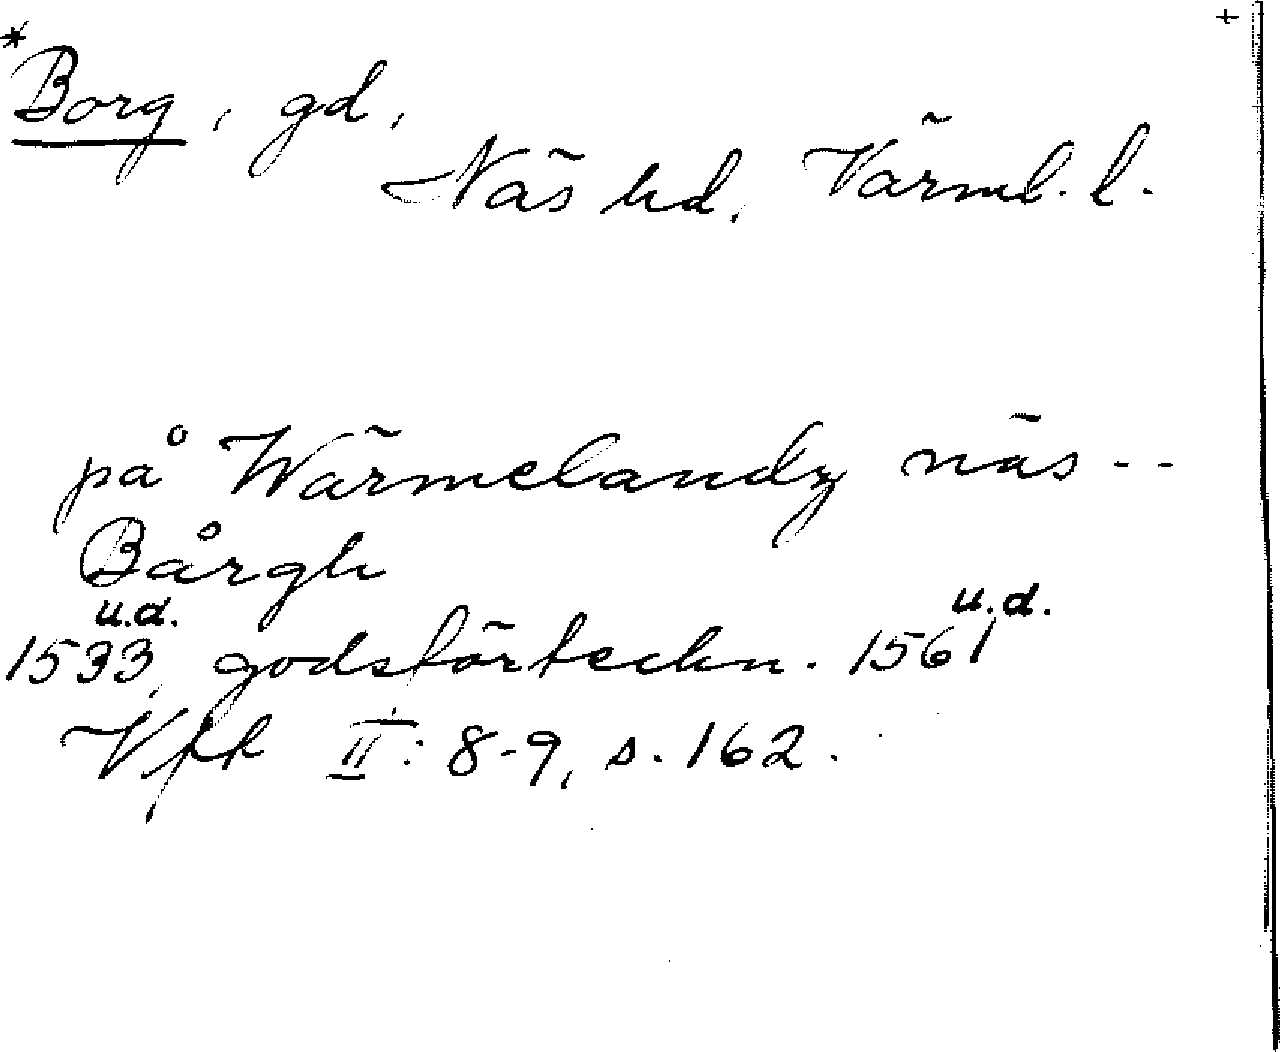 +
*Borg, gd,
Näs hd, Värml. l.
på Wärmelandz näs --
Bårgh
1533 u.d., godsförteckn. 1561 u.d.
Vfk II: 8-9, s. 162.